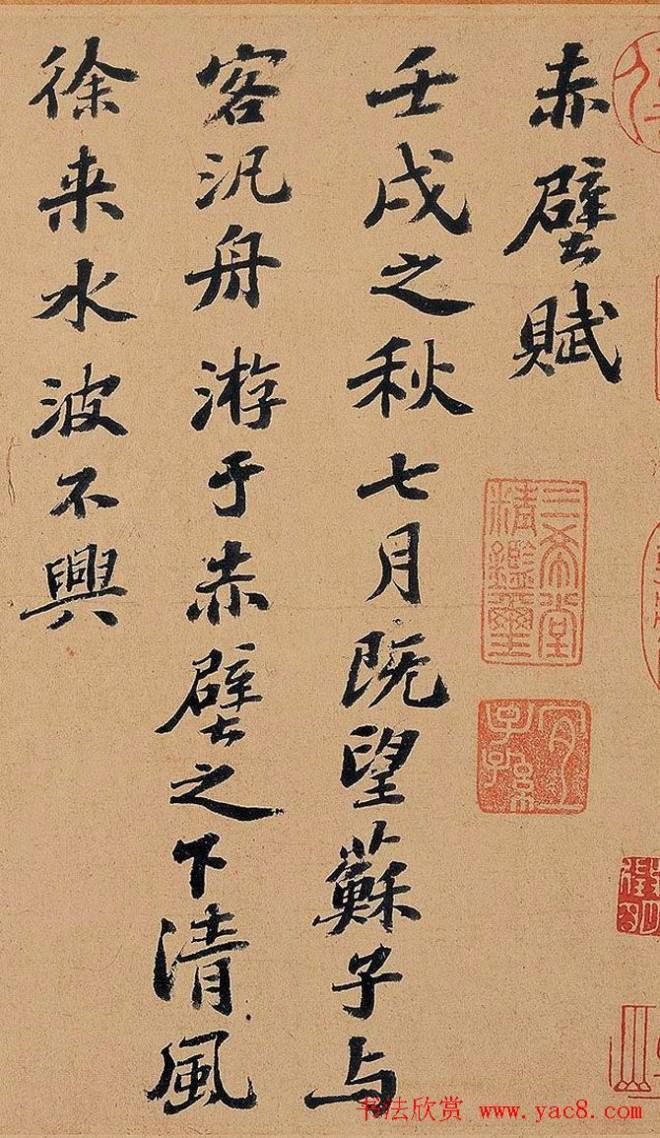 赤壁賦
壬戌之秋七月既望蘇子与
客汎舟游于赤壁之下清風
徐来水波不興
三希堂精鑑璽
宜子孫
书法欣赏 www.yac8.com